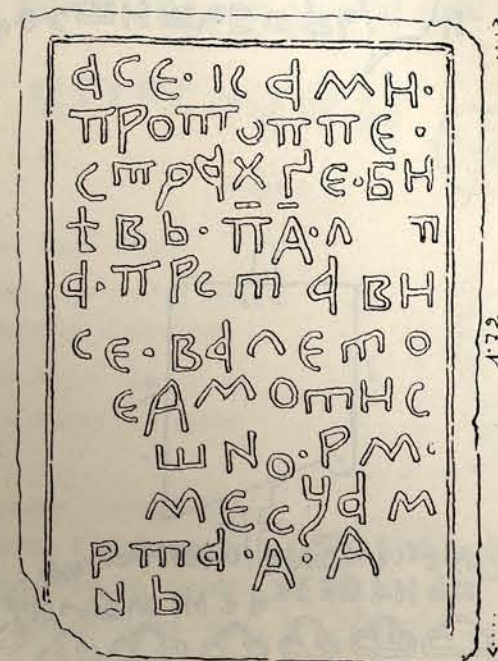 АСЕ·КАМН·
ПРОТОППЕ·
СТРАХҐЕ·Б̄Н
ѢВЬ·П̄А̄·Л П
А·ПРСТАВН
СЕ·ВАЛЕТО
ЕАМОТНС
ШNО·РМ·
МЕСУАМ
РТА·А·А
NЬ
1·72